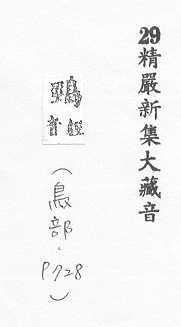 29精嚴新集大藏音
(鳥部.P728)